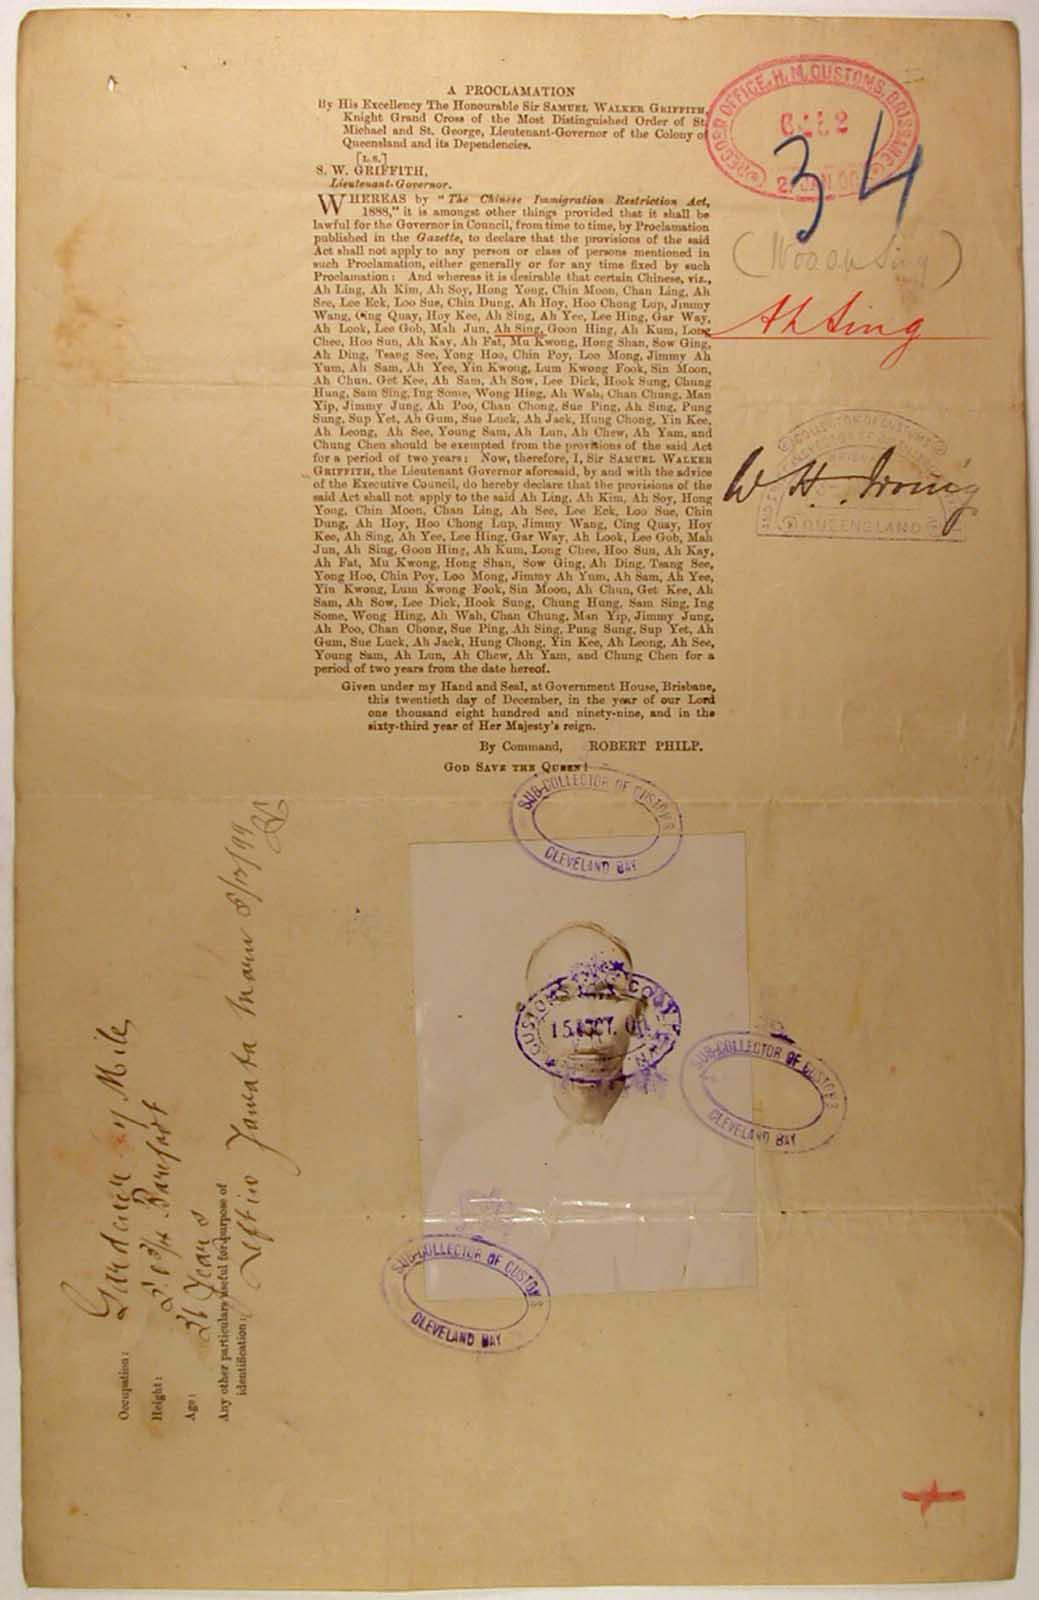 A PROCLAMATION
By His Excellency The Honourable Sir SAMUEL WALKER GRIFFITH,
Knight Grand Cross of the Most Distinguished Order of St.
Michael and St. George, Lieutenant-Governor of the Colony of
Queensland and its Dependencies.
[L.S.]
S. W. GRIFFITH,
Lieutenant-Governor.
WHEREAS by "The Chinese Immigration Restriction Act,
1888," it is amongst other things provided that it shall be
lawful for the Governor in Council, from time to time, by Proclamation
published in the Gazette, to declare that the provisions of the said
Act shall not apply to any person or class of persons mentioned in
such Proclamation, either generally or for any time fixed by such
Proclamation: And whereas it is desirable that certain Chinese, viz.,
Ah Ling, Ah Kim, Ah Soy, Hong Yong, Chin Moon, Chan Ling, Ah
See, Lee Eck, Loo Sue, Chin Dung, Ah Hoy, Hoo Chong Lup, Jimmy
Wang, Cing Quay, Hoy Kee, Ah Sing, Ah Yee, Lee Hing, Gar Way,
Ah Look, Lee Gob, Mah Jun, Ah Sing, Goon Hing, Ah Kum, Long
Chee, Hoo Sun, Ah Kay, Ah Fat, Mu Kwong, Hong Shan, Sow Ging,
Ah Ding, Tsang See, Yong Hoo, Chin Poy, Loo Mong, Jimmy Ah
Yum, Ah Sam, Ah Yee, Yin Kwong, Lum Kwong Fook, Sin Moon,
Ah Chun, Get Kee, Ah Sam, Ah Sow, Lee Dick, Hook Sung, Chung
Hung, Sam Sing, Ing Some, Wong Hing, Ah Wah, Chan Chung, Man
Yip, Jimmy Jung, Ah Poo, Chan Chong, Sue Ping, Ah Sing, Pung
Sung, Sup Yet, Ah Gum, Sue Luck, Ah Jack, Hung Chong, Yin Kee,
Ah Leong, Ah See, Young Sam, Ah Lun, Ah Chew, Ah Yam, and
Chung Chen should be exempted from the provisions of the said Act
for a period of two years: Now, therefore, I, Sir SAMUEL WALKER
GRIFFITH, the Lieutenant Governor aforesaid, by and with the advice
of the Executive Council, do hereby declare that the provisions of the
said Act shall not apply to the said Ah Ling, Ah Kim, Ah Soy, Hong
Yong, Chin Moon, Chan Ling, Ah See, Lee Eck, Loo Sue, Chin
Dung, Ah Hoy, Hoo Chong Lup, Jimmy Wang, Cing Quay, Hoy
Kee, Ah Sing, Ah Yee, Lee Hing, Gar Way, Ah Look, Lee Gob, Mah
Jun, Ah Sing, Goon Hing, Ah Kum, Long Chee, Hoo Sun, Ah Kay,
Ah Fat, Mu Kwong, Hong Shan, Sow Ging, Ah Ding, Tsang See,
Yong Hoo, Chin Poy, Loo Mong, Jimmy Ah Yum, Ah Sam, Ah Yee,
Yin Kwong, Lum Kwong Fook, Sin Moon, Ah Chun, Get Kee, Ah
Sam, Ah Sow, Lee Dick, Hook Sung, Chung Hung, Sam Sing, Ing
Some, Wong Hing, Ah Wah, Chan Chung, Man Yip, Jimmy Jung,
Ah Poo, Chan Chong, Sue Ping, Ah Sing, Pung Sung, Sup Yet, Ah
Gum, Sue Luck, Ah Jack, Hung Chong, Yin Kee, Ah Leong, Ah See,
Young Sam, Ah Lun, Ah Chew, Ah Yam, and Chung Chen for a
period of two years from the date hereof.
Given under my Hand and Seal, at Government House, Brisbane,
this twentieth day of December, in the year of our Lord
one thousand eight hundred and ninety-nine, and in the
sixty-third year of Her Majesty's reign.
By Command, ROBERT PHILP.
GOD SAVE THE QUEEN!
RECORD OFFICE, H. M. CUSTOMS, BRISBANE
2 JAN 00
34
Ah Sing
COLLECTOR OF CUSTOMS
QUEENSLAND
W H Irving
SUB-COLLECTOR OF CUSTOMS
CLEVELAND BAY
CUSTOMS
15 OCT. 00
SUB-COLLECTOR OF CUSTOMS
CLEVELAND BAY
SUB-COLLECTOR OF CUSTOMS
CLEVELAND BAY
Occupation: Gardener 7 Mile
Height: Barefoot
Age: Years
Any other particulars useful for purpose of
identification:
8/12/99